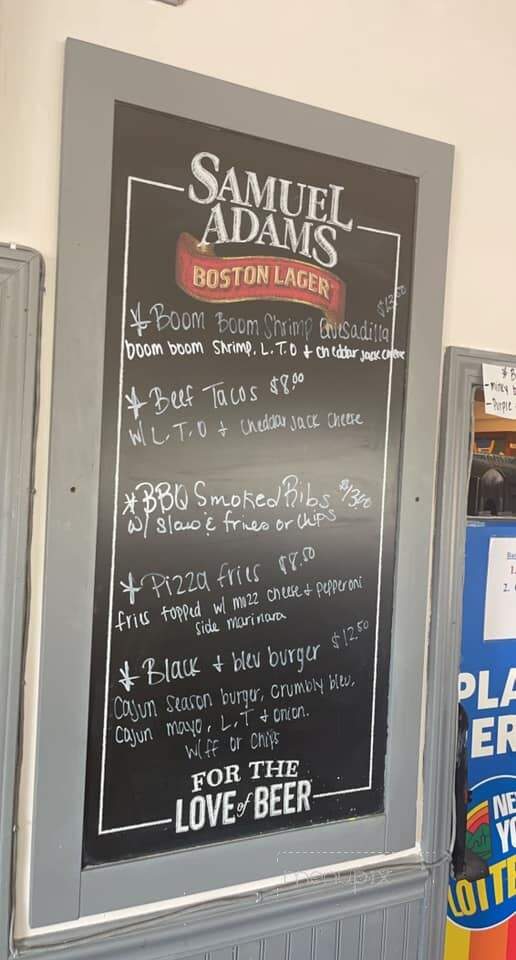 SAMUEL
ADAMS
BOSTON LAGER
$13.50
* Boom Boom Shrimp Quesadilla
boom boom Shrimp, L.T.O + cheddar jack cheese
* Beef Tacos $8.00
w/ L.T.O + cheddar jack cheese
* BBQ Smoked Ribs
w/ slaw & fries or chips
* Pizza fries $8.50
fries topped w/ mozz cheese + pepperoni
side marinara
* Black + bleu burger $12.50
Cajun season burger, crumbly bleu,
cajun mayo, L.T + onion.
w/ ff or chips
FOR THE
LOVE of BEER
menupix
* B
- Purple
PLA
ER
NE
YO
LOTTE